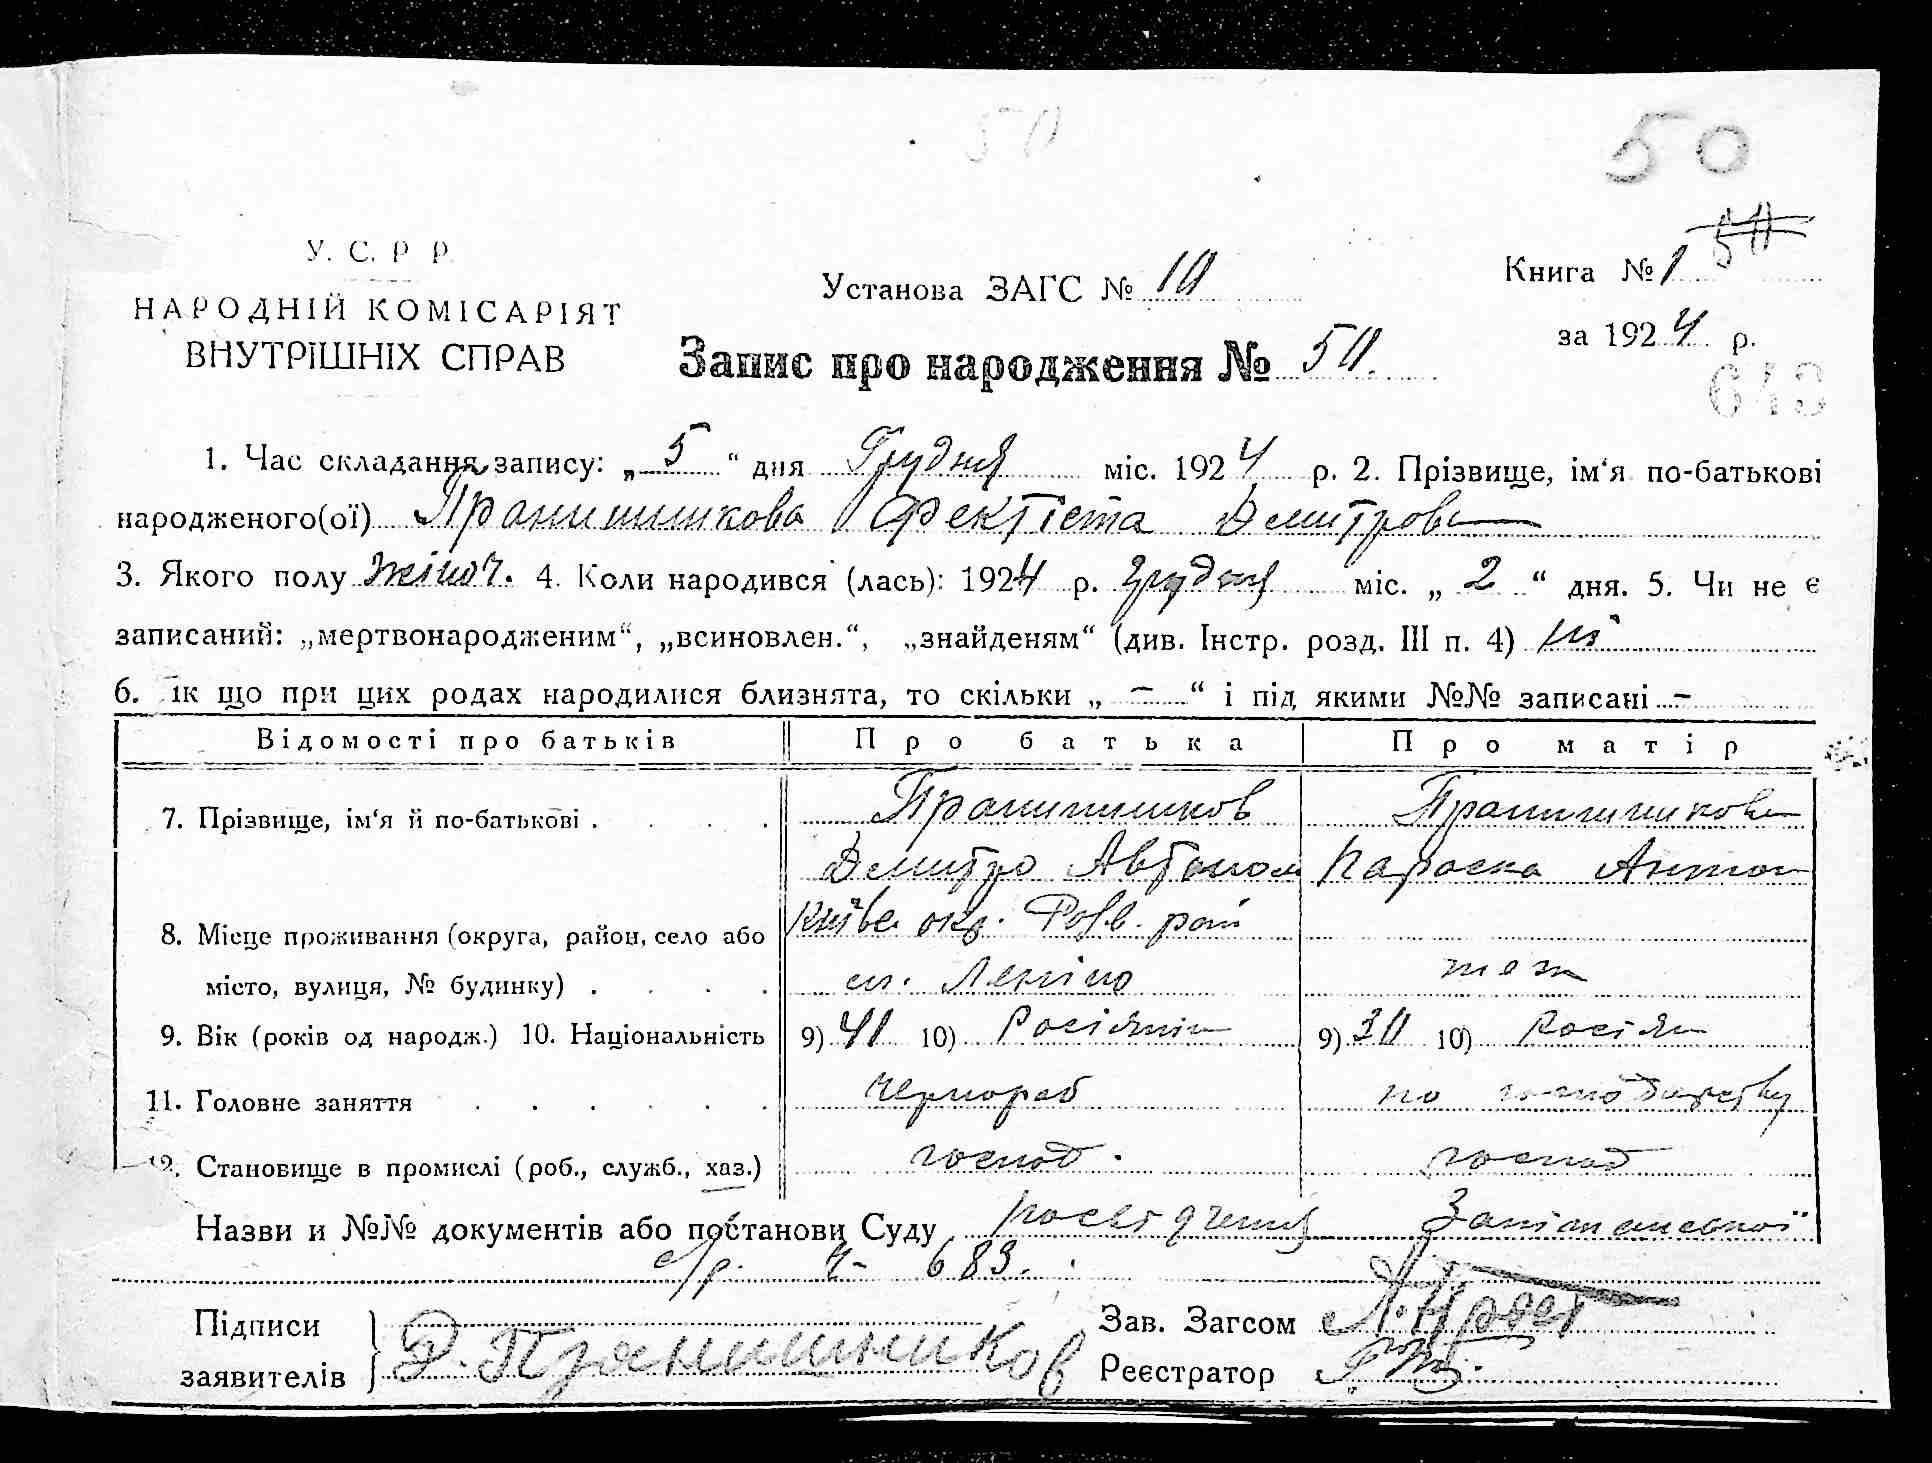 50
50
У. С. Р Р.
НАРОДНІЙ КОМІСАРІЯТ
ВНУТРІШНІХ СПРАВ
Установа ЗАГС № 10
Книга № 1 50
за 1924 р.
Запис про народження № 50.
643
1. Час складання запису: „ 5 “ дня Грудня міс. 1924 р. 2. Прізвище, ім‘я по-батькові
народженого(ої) Пранишникова Фектіста Дмитров
3. Якого полу жіноч. 4. Коли народився (лась): 1924 р. грудня міс. „ 2 “ дня. 5. Чи не є
записаний: „мертвонародженим“, „всиновлен.“, „знайденям“ (див. Інстр. розд. III п. 4) ні
6. Як що при цих родах народилися близнята, то скільки „ – “ і під якими №№ записані –
Відомості про батьків Про батька Про матір
7. Прізвище, ім‘я й по-батькові . . . . Пранишников Пранишникова
Дмитро Автоном Параска Антон
8. Місце проживання (округа, район, село або Київс окр. рай
місто, вулиця, № будинку) . . . . Леніно теж
9. Вік (років од народж.) 10. Національність 9) 41 10) Росіянин 9) 30 10) Росіян
11. Головне заняття . . . . . . чернороб по господарству
12. Становище в промислі (роб., служб., хаз.) господ. господ
Назви и №№ документів або постанови Суду посвідчення
с/р. ч- 683.
Підписи
заявителів Д. Прянишников
Зав. Загсом
Реєстратор